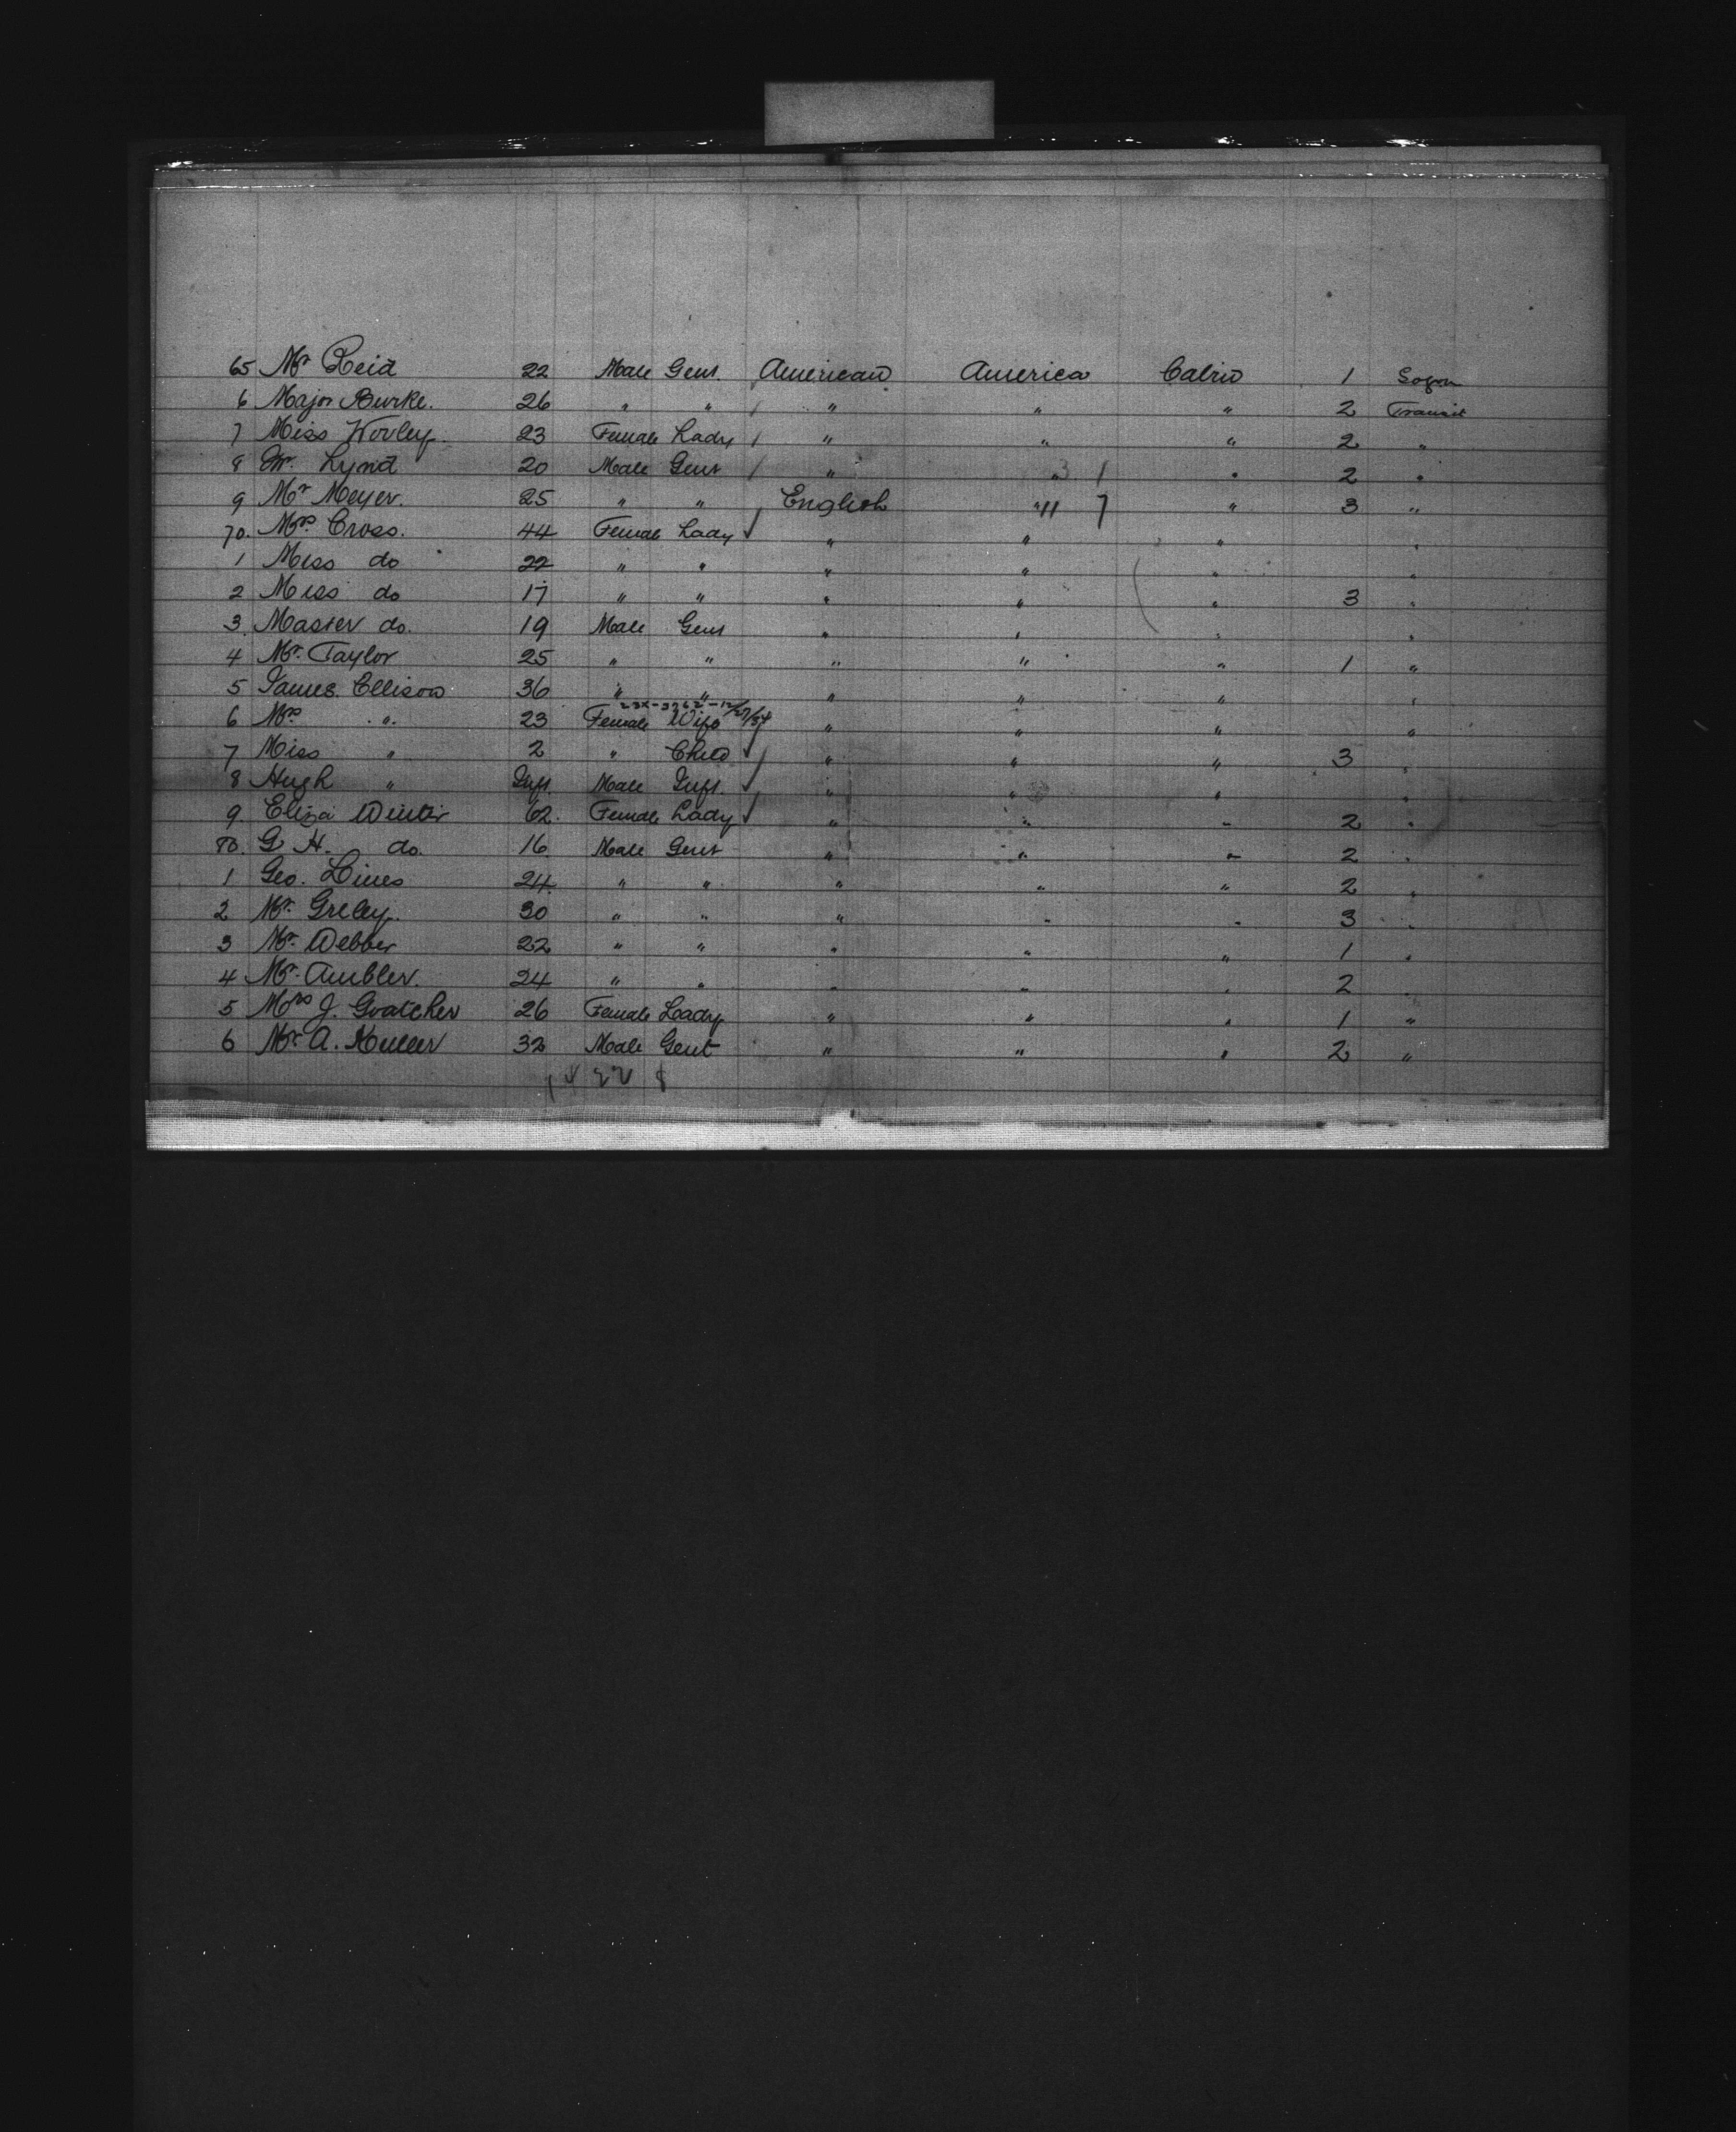 65 Mr Reid 22 Male Gent. American America Cabin 1 Sogon
6 Major Burke. 26 " " " " " 2 Transit
7 Miss Wooley. 23 Female Lady " " " 2 "
8 Mr. Lynd 20 Male Gent " " " 2 "
9 Mr Meyer. 25 " " English " " 3 "
70. Mrs Cross. 44 Female Lady " " " "
1 Miss do 22 " " " " " "
2 Miss do 17 " " " " " 3 "
3. Master do. 19 Male Gent " " " "
4 Mr. Taylor 25 " " " " " 1 "
5 James Ellison 36 " " " " " "
23X-3262-12/27/54
6 Mrs " 23 Female Wife " " " "
7 Miss " 2 " Child " " " 3 "
8 Hugh " Inft. Male Inft. " " " "
9. Eliza Winter 62. Female Lady " " " 2 "
80. G H. do. 16 Male Gent " " " 2 "
1 Geo. Lines 24 " " " " " 2 "
2 Mr. Greley. 30 " " " " " 3 "
3 Mr. Webber 22 " " " " " 1 "
4 Mr. Ambler. 24 " " " " " 2 "
5 Mrs J. Goatcher 26 Female Lady " " " 1 "
6 Mr. A. 32 Male Gent " " " 2 "